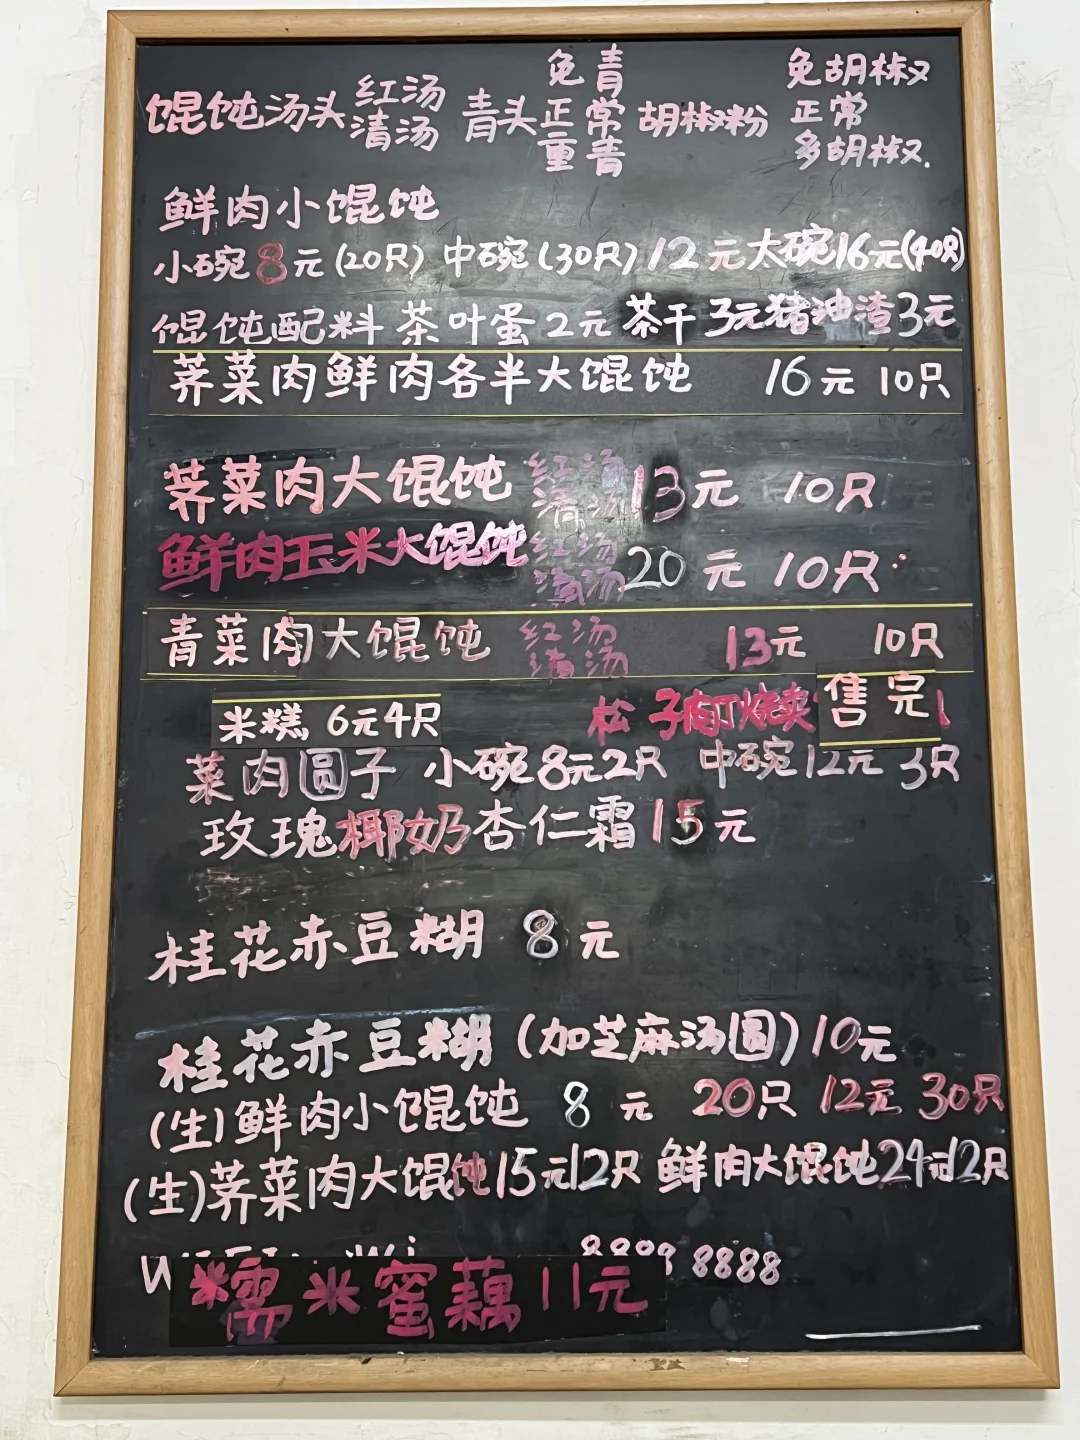 馄饨汤头 红汤 清汤 青头 免青 正常 重青 胡椒粉 免胡椒 正常 多胡椒.
鲜肉小馄饨
小碗8元(20只) 中碗(30只)12元 大碗16元(40只)
馄饨配料 茶叶蛋2元 茶干3元 猪油渣3元
荠菜肉鲜肉各半大馄饨 16元 10只
荠菜肉大馄饨 红汤 清汤 13元 10只
鲜肉玉米大馄饨 红汤 清汤 20元 10只
青菜肉大馄饨 红汤 清汤 13元 10只
米糕 6元4只 松子肉丁烧卖 售完
菜肉圆子 小碗8元2只 中碗12元 3只
玫瑰椰奶杏仁霜15元
桂花赤豆糊 8元
桂花赤豆糊(加芝麻汤圆)10元
(生)鲜肉小馄饨 8元 20只 12元 30只
(生)荠菜肉大馄饨15元12只 鲜肉大馄饨24元12只
8888
糯米蜜藕11元